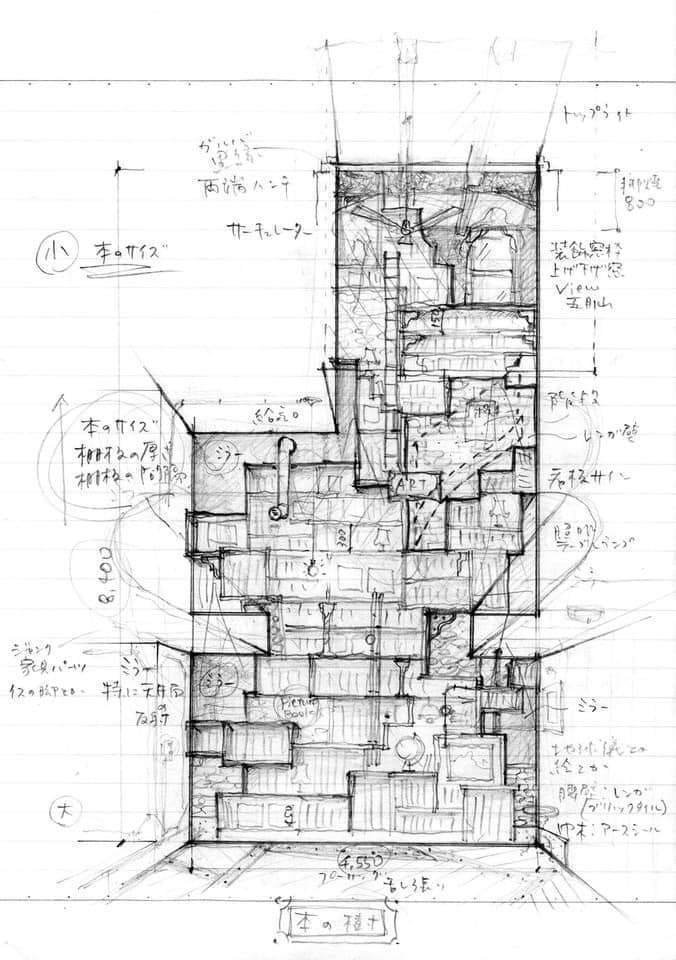 トップライト
ガルバ
両端ハンチ
サーキュレーター
排煙
800
小
本のサイズ
装飾窓枠
上げ下げ窓
View
五月山
本のサイズ
棚板の厚
棚板の
給気口
ミラー
レンガ壁
看板サイン
ART
8,400
ジャンク
家具パーツ
イスの脚とか
ミラー
特に天井面
の
反射
ミラー
ミラー
Picture
Books
地球儀とか
絵とか
腰壁:レンガ
(ブリックタイル)
巾木:アースシール
大
4,550
フローリング
本の積木